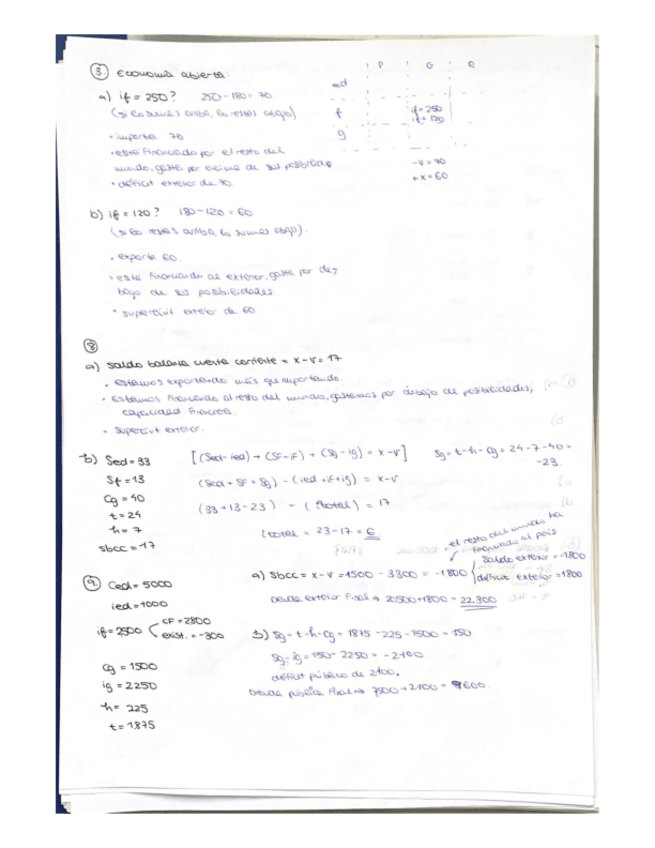 ③ economía abierta:
P G R
ed
f if = 250
if = 120
g
-v = 70
+x = 60
a) if = 250? 250-180 = 70.
(si lo sumes arriba, lo restas abajo)
· importa 70
· está financiado por el resto del
mundo, gasta por encima de sus posibilidades
· déficit exterior de 70.
b) if = 120? 180-120 = 60
(si lo restas arriba, lo sumas abajo).
· exporta 60.
· está financiando al exterior, gasta por de-
bajo de sus posibilidades.
· superávit exterior de 60.
⑧
a) saldo balanza cuenta corriente = x-v = 17
· estamos exportando más que importando.
· Estamos financiando al resto del mundo, gastamos por debajo de posibilidades,
capacidad financiera.
· superávit exterior.
b) Sed = 33 [(Sed-ied) + (SF-iF) + (Sg-ig) = x-v] Sg = t-h-Cg = 24-7-40 =
-23.
Sf = 13 (Sed + SF + Sg) - (ied + iF + ig) = x-v
Cg = 40
t = 24 (33+13-23) - (i total) = 17
h = 7 i total = 23-17 = 6
sbcc = 17
⑨ Ced = 5000
ied = 1000
if = 2500 CF = 2800
exist. = -300
Cg = 1500
ig = 2250
h = 225
t = 1875
a) Sbcc = x-v = 1500 - 3300 = -1800
el resto del mundo ha
financiado al país
saldo exterior = -1800
déficit exterior = 1800
Deuda exterior final → 20500+1800 = 22.300
b) Sg = t-h-Cg = 1875 -225 -1500 = 150
Sg-ig = 150- 2250 = -2100
déficit público de 2100,
Deuda pública final → 7500+2100 = 9600.